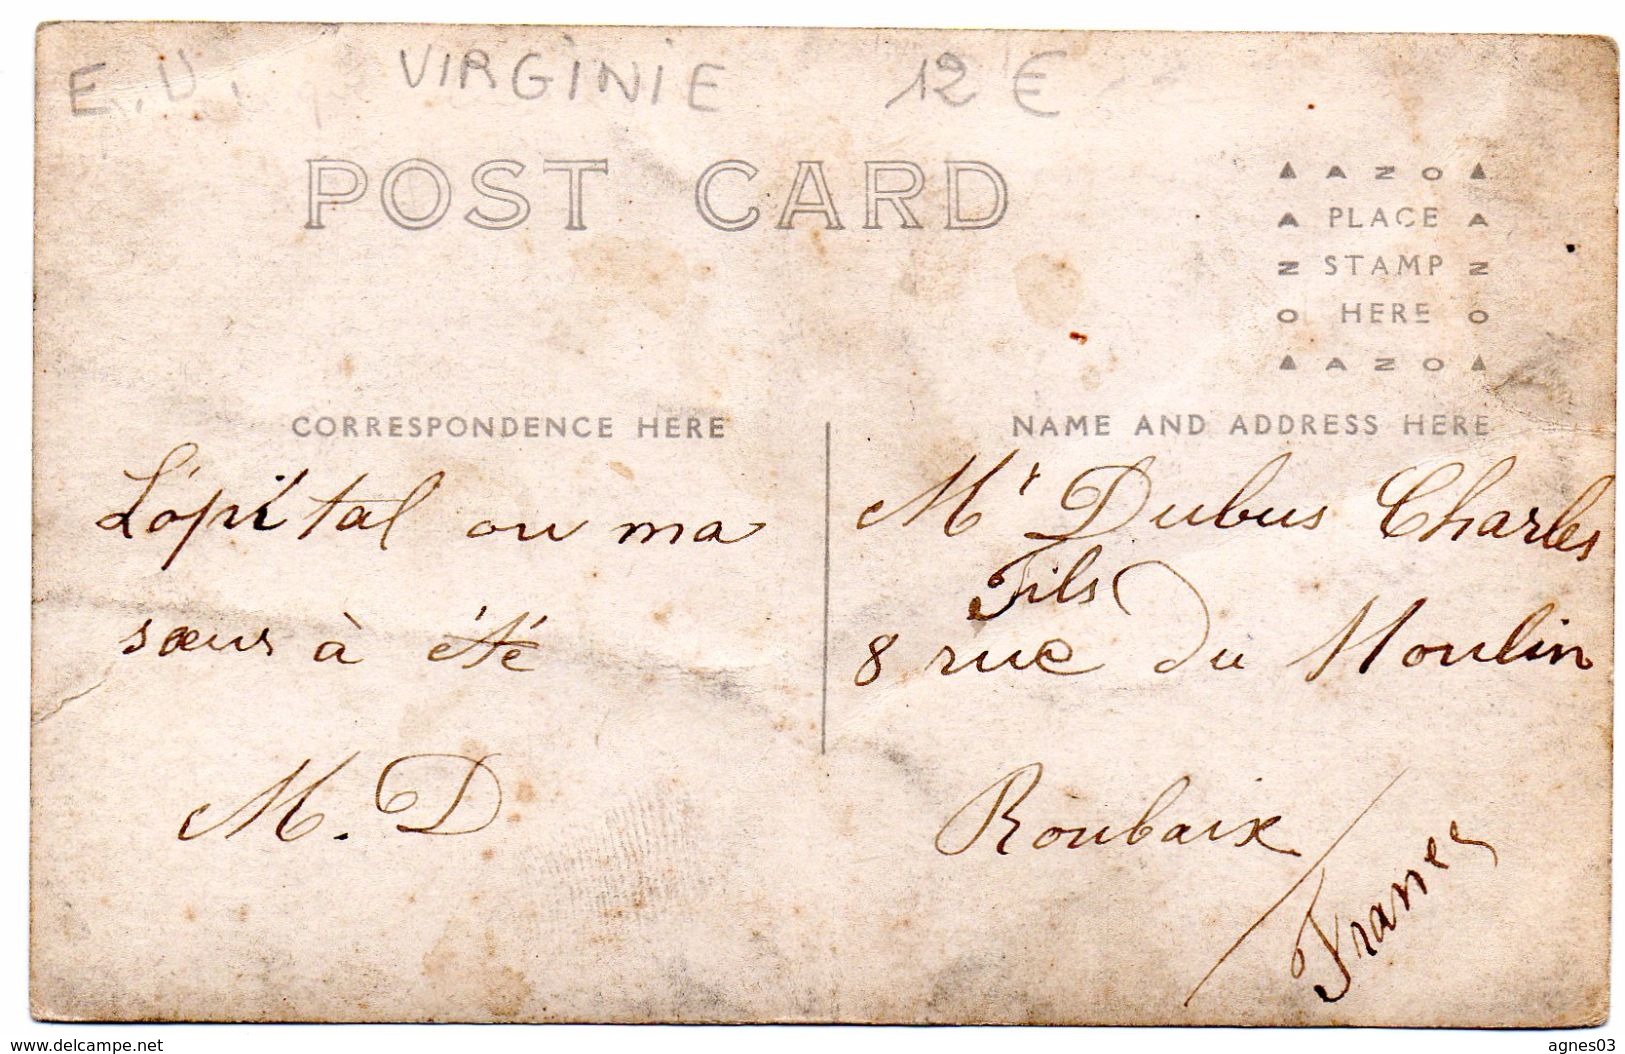 E.U. VIRGINIE 12 €
POST CARD
AZO
PLACE
STAMP
HERE
AZO
CORRESPONDENCE HERE
L'ópital ou ma
sœur à été
M. D
NAME AND ADDRESS HERE
Mr Dubus Charles
Fils
8 rue du Moulin
Roubaix
France
www.delcampe.net
agnes03